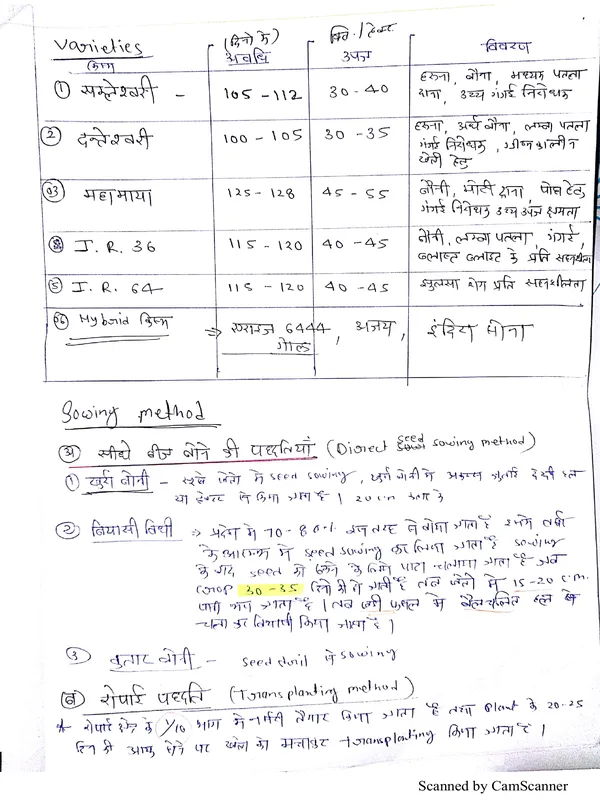 Varieties (दिनो में) क्वि./हेक्ट.
किस्म अवधि उपज विवरण
① सम्लेश्वरी - 105 - 112 30 - 40 हरुना, बौना, मध्यम पतला
दाना, उच्च गंगई निरोधक
② दन्तेश्वरी 100 - 105 30 - 35 हरुना, अर्ध बौना, लम्बा पतला
गंगई निरोधक, ग्रीष्म कालीन
खेती हेतु
03 महामाया 125 - 128 45 - 55 बौनी, मोटी दाना, पोहा हेतु
गंगई निरोधक उच्च उपज क्षमता
I.R. 36 115 - 120 40 - 45 बौनी, लम्बा पतला, गंगई,
ब्लास्ट ब्लाइट के प्रति सहनशील
⑤ I.R. 64 115 - 120 40 - 45 झुलसा रोग प्रति सहनशीलता
06 Hybrid किस्म ⇒ 6444 , अजय, इंडिया सोना
गोल्ड
Sowing method
अ सीधे बीज बोने की पद्धतियाँ (Direct seed sowing method)
① खुर्रा बोनी - सूखे खेतो में seed sowing,
या किया जाता है। 20 cm
② बियासी विधी ⇒ प्रदेश में 70 - 80% इस तरह से बोया जाता है इसमें वर्षा
के आरम्भ में seed sowing कर लिया जाता है sowing
के बाद seed को ढकने के लिये पाटा चलाया जाता है जब
crop 30 - 35 दिनो की हो जाती है तब खेतो में 15-20 c.m.
पानी भरा जाता है। तब खड़ी फसल में बैलचलित हल से
चला कर बियासी किया जाता है।
3 कतार बोनी - seed drill से sowing
ब रोपाई पद्धति (Transplanting method)
* रोपाई क्षेत्र के 1/10 भाग में नर्सरी तैयार किया जाता है तथा plant के 20-25
दिन की आयु होने पर खेत को मचाकर transplanting किया जाता है।
Scanned by CamScanner